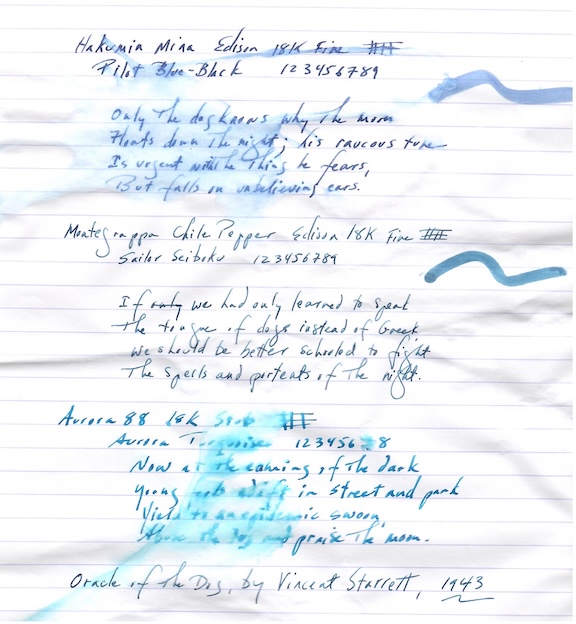 Hakumin Mina Edison 18K Fine
Pilot Blue-Black 123456789
Only the dog knows why the moon
Floats down the night; his raucous tune
Is urgent with the thing he fears,
But falls on unbelieving ears.
Montegrappa Chile Pepper Edison 18K Fine
Sailor Seiboku 123456789
If only we had only learned to speak
The tongue of dogs instead of Greek
We should be better schooled to fight
The spells and portents of the night.
Aurora 88 18K Stub
Aurora Turquoise 123456 8
Now at the coming of the dark
Young in street and park
Yield to an epidemic swoon,
the dog and praise the moon.
Oracle of the Dog, by Vincent Starrett, 1943